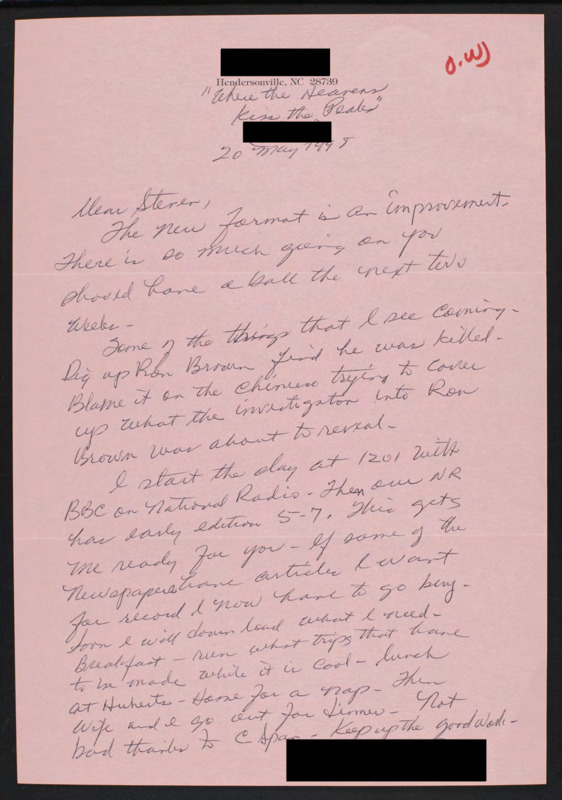 O.W.
Hendersonville, NC 28739
"Where the Heavens
Kiss the Peaks"
20 May 1998
Dear Steven,
The New Format is an improvement.
There is so much going on you
should have a ball the next two
weeks -
Some of the things that I see coming -
Dig up Ron Brown find he was killed -
Blame it on the Chinese trying to cover
up what the investigator into Ron
Brown was about to reveal -
I start the day at 1201 with
BBC on National Radio - Then our NR
has early edition 5-7. This gets
me ready for you - If some of the
Newspapers have articles I want
for record I now have to go buy -
Soon I will down load what I need -
Breakfast - run what trips that have
to be made while it is cool - lunch
at - Home for a nap - Then
Wife and I go out for dinner - Not
bad thanks to C Span - Keep up the good work -